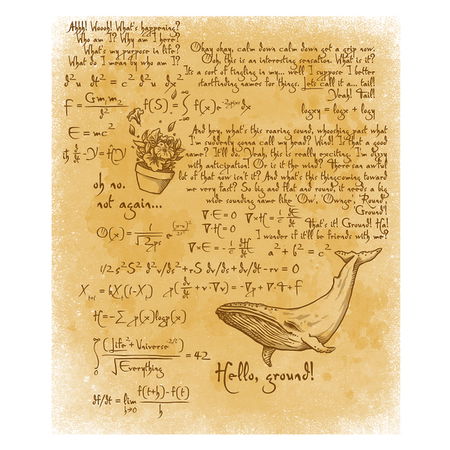 Ahhh! Woooh! What's happening?
Who am I? Why am I here?
What's my purpose in life?
What do I mean by who am I?
Okay okay, calm down calm down get a grip now.
Ooh, this is an interesting sensation. What is it?
Its a sort of tingling in my... well I suppose I better
start finding names for things. Lets call it a... tail!
Yeah! Tail!
d²u/dt² = c² d²u/dx²
F = G m₁m₂/d²
f(S) = ∫ f(x) e dx
logxy = logx + logy
E = mc²
oh no.
not again...
And hey, what's this roaring sound, whooshing past what
I'm suddenly gonna call my head? Wind! Is that a good
name? It'll do. Yeah, this is really exciting. I'm dizzy
with anticipation! Or is it the wind? There's an awful
lot of that now isn't it? And what's this thing coming toward
me very fast? So big and flat and round, it needs a big
wide sounding name like 'Ow', 'Ownge', 'Round',
'Ground'!
That's it! Ground! Ha!
I wonder if it'll be friends with me?
∇·E = 0
∇·H = 0
∇×E = -1/c dH/dt
∇×H = 1/c dE/dt
a² + b² = c²
1/2 s²S² d²v/ds² + rS dv/ds + dv/dt - rv = 0
Xₜ₊₁ = kXₜ(1-Xₜ)
H = -Σ p(x) log p(x)
∫ (Life² + Universe²/²) / √Everything = 42
Hello, ground!
df/dt = lim h→0 f(t+h) - f(t) / h